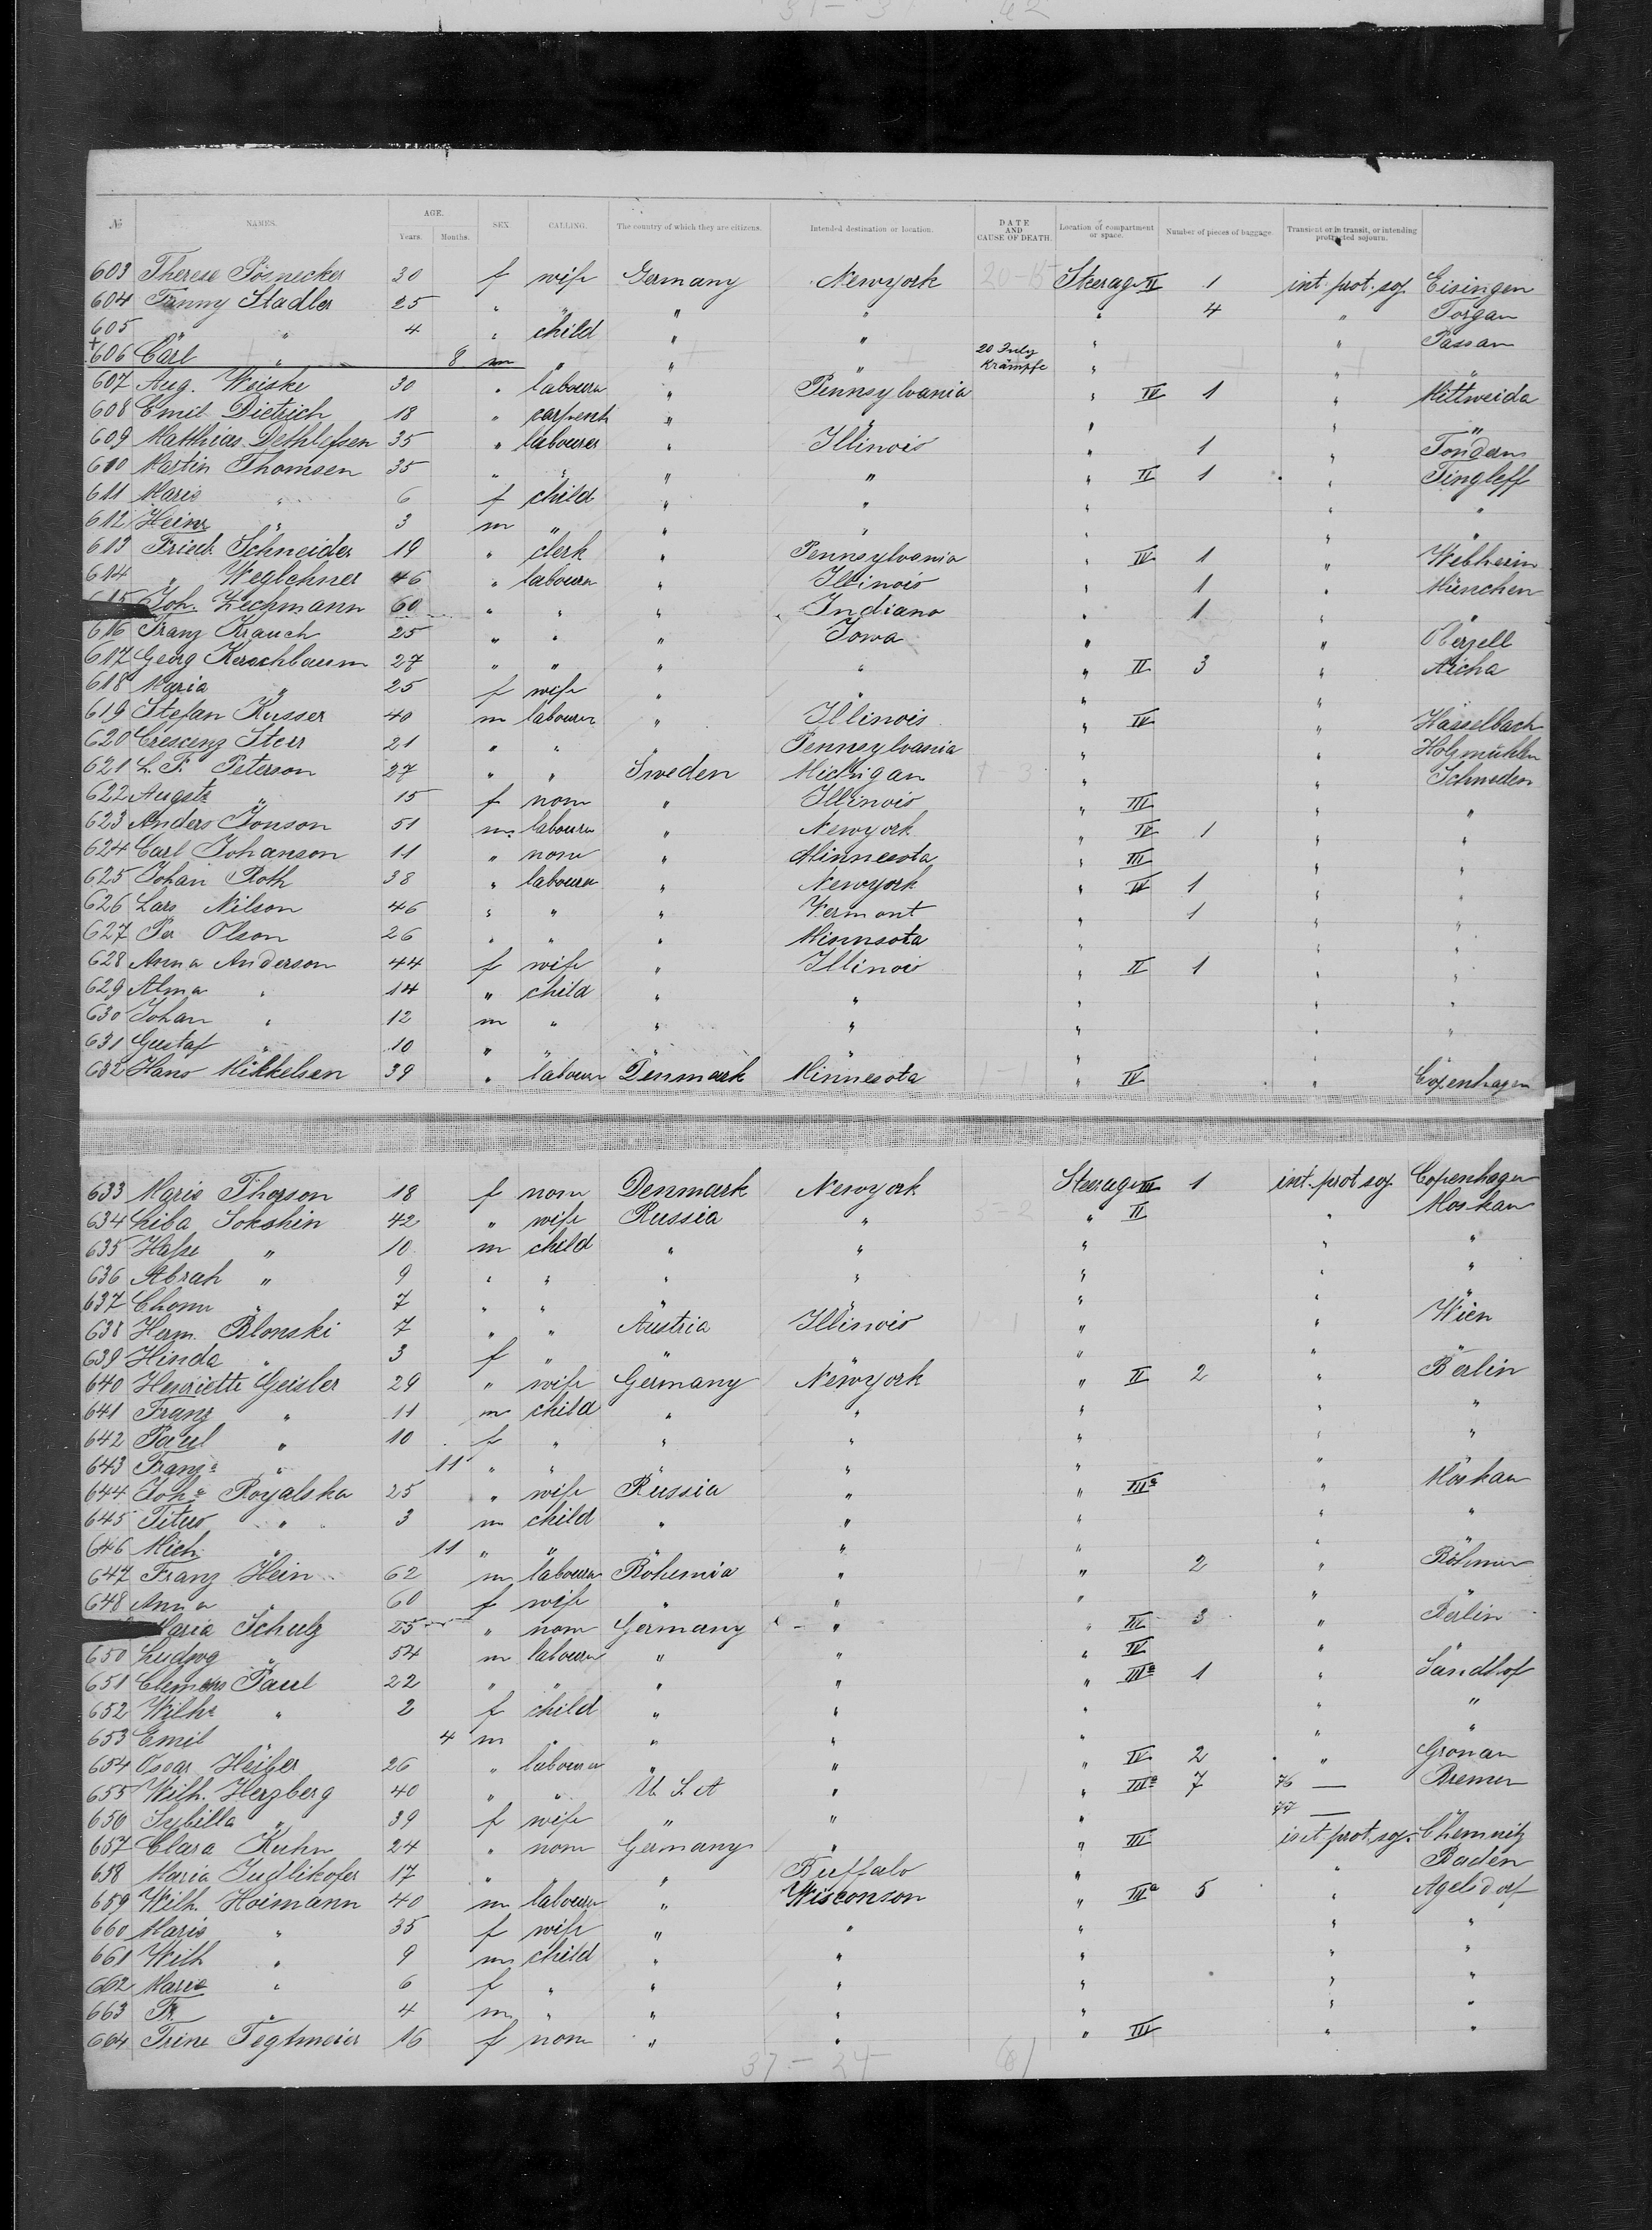 № NAMES. AGE. Years. Months. SEX. CALLING. The country of which they are citizens. Intended destination or location. DATE AND CAUSE OF DEATH. Location of compartment or space. Number of pieces of baggage. Transient or in transit, or intending protracted sojourn.
603 Therese Pösnecker 30 f wife Germany Newyork 20-15 Steerage II 1 int. prot. soj. Eisingen
604 Fanny Stadler 25 " " " " " 4 " Torgau
605 " " 4 " child " " " " Passau
+606 Carl " 8 m " " " 20 July Krämpfe " " "
607 Aug. Weiske 30 " labourer " Pennsylvania " IV 1 " Mittweida
608 Emil Dietrich 18 " carpent " " " " "
609 Matthias Dethlefsen 35 " labourer " Illinois " 1 " Tondern
610 Martin Thomsen 35 " " " " " II 1 " Tingleff
611 Marie " 6 f child " " " " "
612 Heinr " 3 m " " " " " "
613 Fried. Schneider 19 " clerk " Pennsylvania " IV 1 "
614 " Weglehner 46 " labourer " Illinois " 1 " München
615 Joh. Zechmann 60 " " " Indiana " 1 " "
616 Franz Krauch 25 " " " Iowa " " Oberzell
617 Georg Kerschbaum 27 " " " " " II 3 " Aicha
618 Maria " 25 f wife " " " " "
619 Stefan Kusser 40 m labourer " Illinois " IV " Hasselbach
620 Crescenz Steer 21 " " " Pennsylvania " " Holzmühlen
621 L. F. Peterson 27 " " Sweden Michigan 8-3 " " Schweden
622 Augste " 15 f none " Illinois " III " "
623 Anders Jonson 51 m labourer " Newyork " IV 1 " "
624 Carl Johanson 11 " none " Minnesota " III " "
625 Johan Roth 38 " labourer " Newyork " IV 1 " "
626 Lars Nilson 46 " " " Vermont " 1 " "
627 Per Olson 26 " " " Minnsota " " "
628 Anna Anderson 44 f wife " Illinois " II 1 " "
629 Alma " 14 " child " " " " "
630 Johan " 12 m " " " " " "
631 Gustaf " 10 " " " " " " "
632 Hans Mikkelsen 39 " labourer Denmark Minnesota 1-1 " IV " Copenhagen
633 Marie Thorson 18 f none Denmark Newyork Steerage III 1 int. prot soj. Copenhagen
634 Liba Sokshin 42 " wife Russia " 5-2 " II " Moskau
635 " 10 m child " " " " "
636 Abrah " 9 " " " " " " "
637 " 7 " " " " " " "
638 Herm. Blonski 7 " " Austria Illinois 1-1 " " Wien
639 Hinda " 3 f " " " " " "
640 Henriette Geisler 29 " wife Germany Newyork " II 2 " Berlin
641 Franz " 11 m child " " " " "
642 Paul " 10 f " " " " " "
643 Franz.a " 11 " " " " " "
644 Joh.a Royalska 25 " wife Russia " " IIIa " Moskau
645 Titus " 3 m child " " " " "
646 Mich. " 11 " " " " " "
647 Franz Hein 62 m labourer Bohemia " " 2 " Böhmen
648 Anna " 60 f wife " " " "
Maria Schulz 25 " none Germany " " III 3 " Berlin
650 Ludwg " 54 m labourer " " " IV " "
651 Clemens Paul 22 " " " " " IIIa 1 " Sandhof
652 Wilhe " 2 f child " " " " "
653 Emil 4 m " " " " " "
654 Oscar Heiber 26 " labourer " " " IV 2 " Gronau
655 Wilh. Herzberg 40 " " U. S. A " " IIIa 7 76 — Bremen
656 Sybilla " 39 f wife " " " 77 —
657 Clara Kuhn 24 " none Germany " " III int. prot soj. Chemnitz
658 Maria Judlikofer 17 " " " Buffalo " " Baden
659 Wilh. Hoimann 40 m labourer " Wisconson " IIIa 5 " Agelsdorf
660 Marie " 35 f wife " " " " "
661 Wilh " 9 m child " " " " "
662 Marie " 6 f " " " " " "
663 Fr. " 4 m " " " " " "
664 Trine Tegtmeier 16 f none " " " III " "
37-24 61